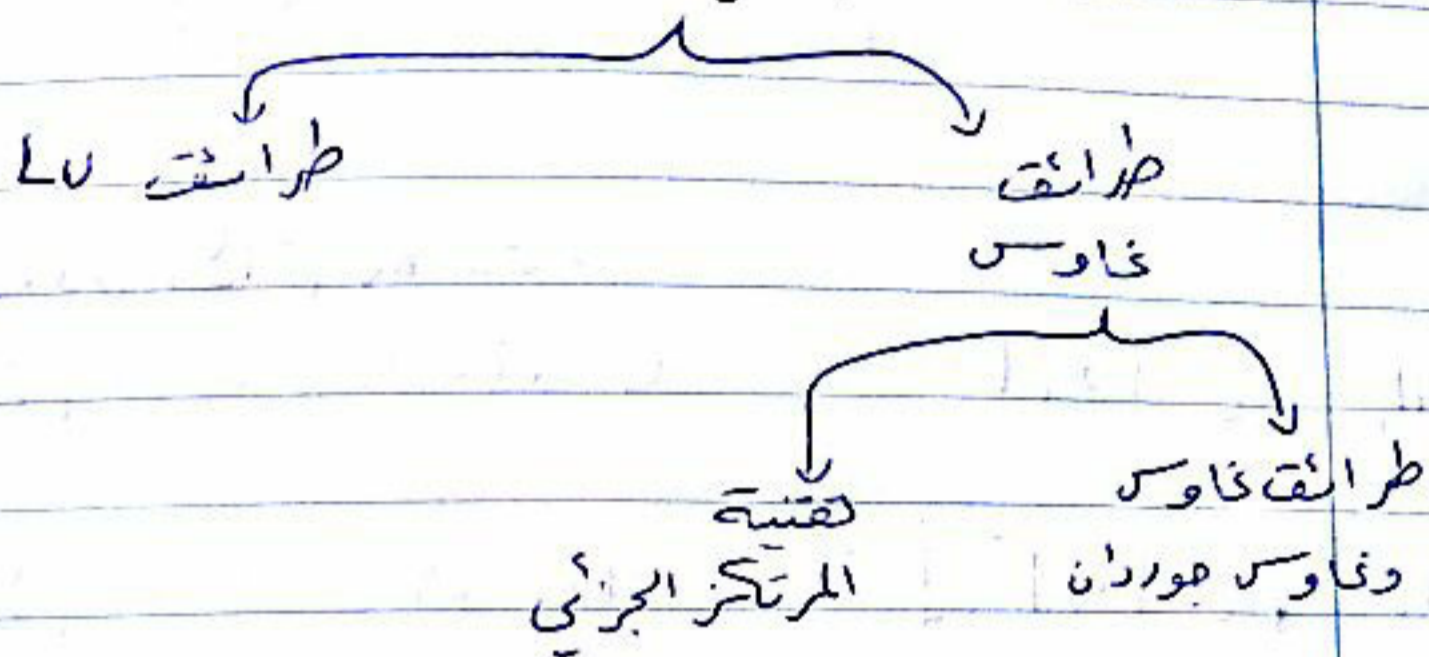 طرائق
غاوس
طرائق LU
طرائق غاوس
وغاوس جوردان
تقنية
المرتكز الجزئي